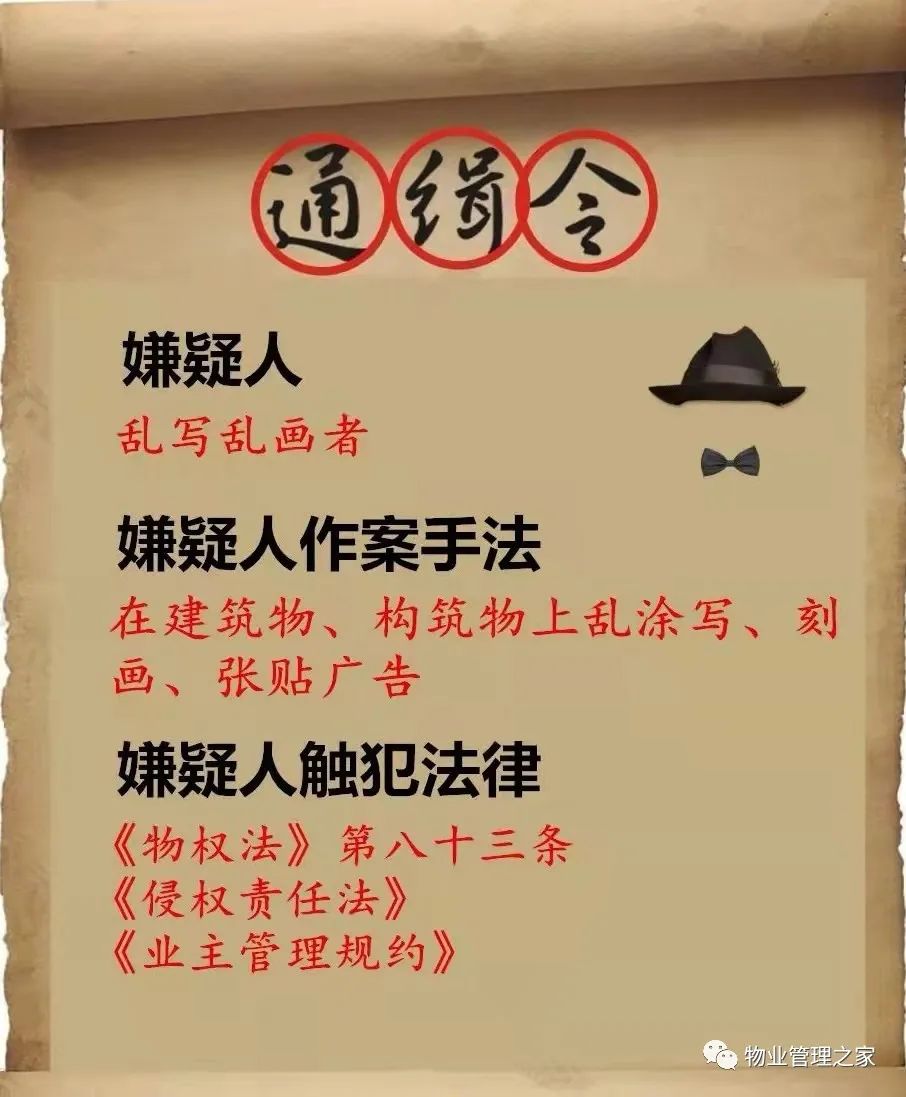 通缉令
嫌疑人
乱写乱画者
嫌疑人作案手法
在建筑物、构筑物上乱涂写、刻
画、张贴广告
嫌疑人触犯法律
《物权法》第八十三条
《侵权责任法》
《业主管理规约》
物业管理之家